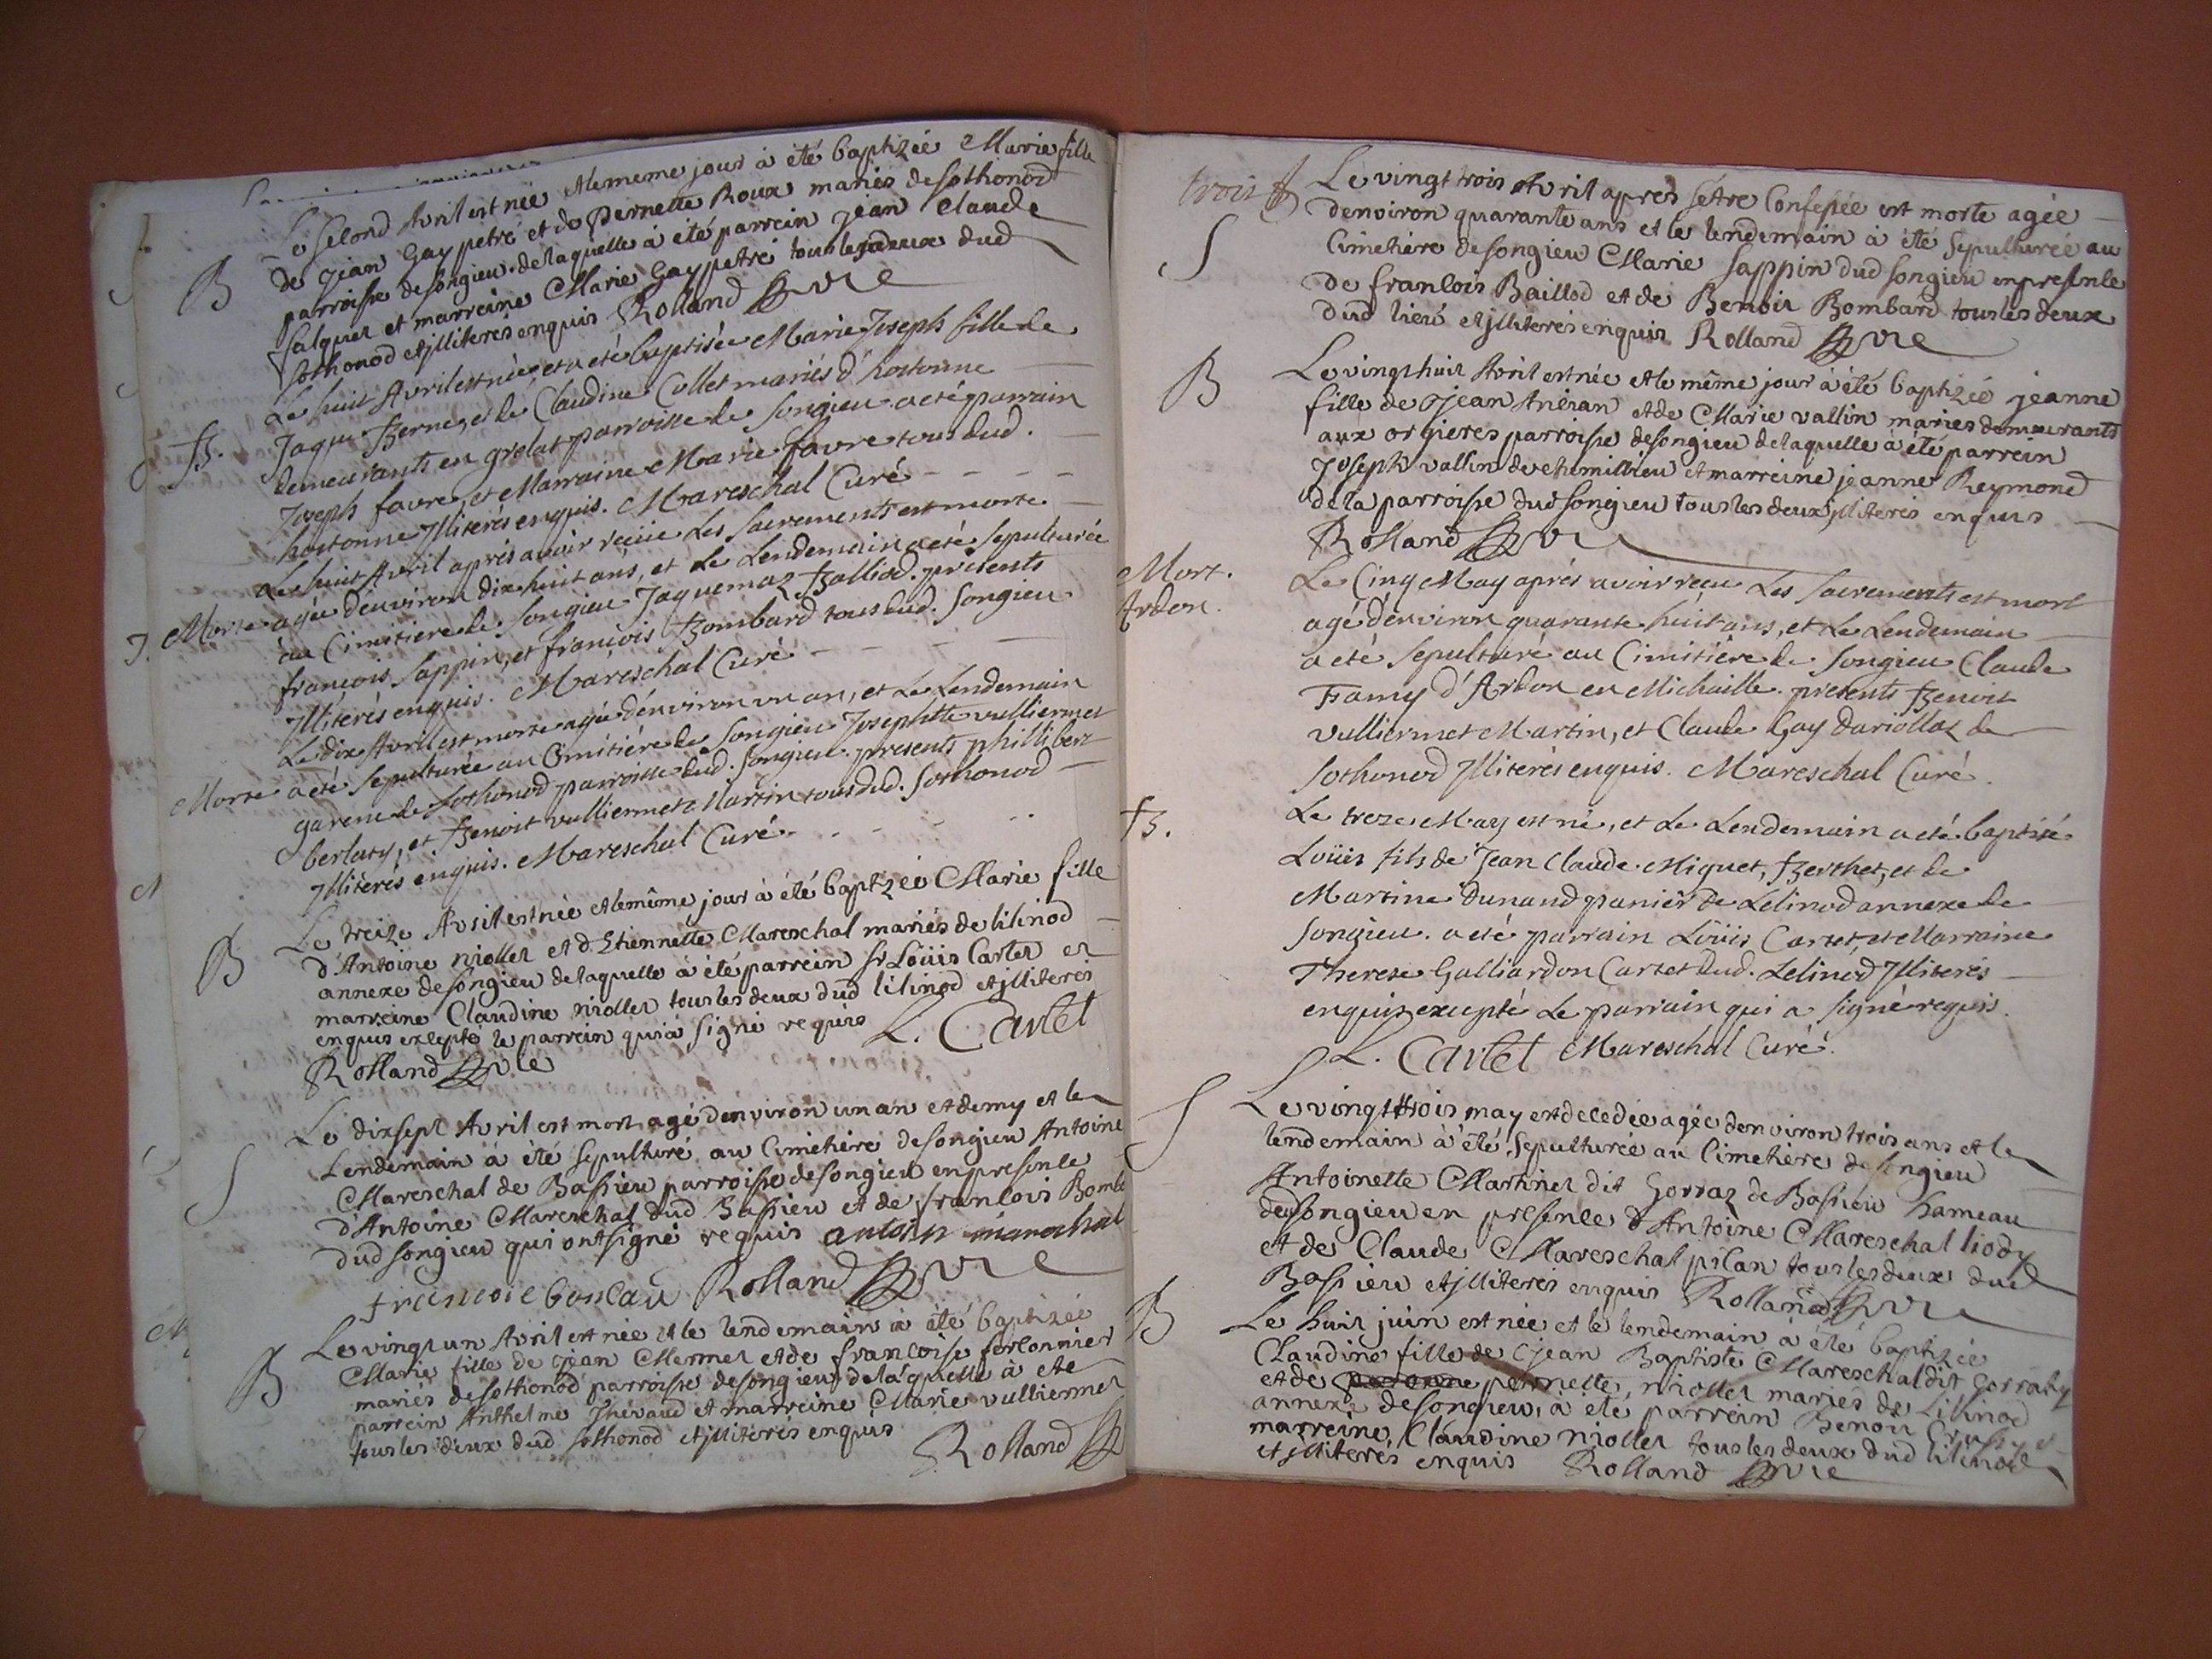 Le second Avril est née et le meme jour à été baptizée Marie fille
de jean Gay petré et de pernette Roux mariés de sothonod
B
parroisse de songieu. de laquelle à été parrein jean Claude
falquet et marreine Marie Gay petré tous les deux dud
sothonod et jlliterés enquis Rolland vre
Le huit Avril est née et a eté baptisée Marie Joseph fille de
B.
Jaque Berne, et de Claudine Collet mariés d'hostonne
demeurants en grelat parroisse de Songieu. a eté parrain
Joseph favre, et Marraine Marie favre tous dud.
hostonne Jlliterés enquis. Mareschal Curé
Le huit Avril aprés avoir reçüe Les Sacrements est morte
Morte
agée d'environ dix huit ans, et Le Lendemain a eté sepulturée
au Cimitiere de Songieu Jaquemaz Balliod. présents
françois Sappin, et françois Bombard tous dud. Songieu
Jlliterés enquis. Mareschal Curé
Le dix Avril est morte agée d'environ un an, et Le Lendemain
Morte
a eté sepulturée au Cimitiére de Songieu Josephte vulliermet
garene de Sothonod parroisse dud. Songieu. presents phillibert
berlary, et Benoit vulliermet Martin tous dud. Sothonod
Jlliterés enquis. Mareschal Curé.
Le treize Avril est née et le même jour à été baptizée Marie fille
B
d'Antoine niollet et d'Etiennette Mareschal mariés de lilinod
annexe de songieu de laquelle à été parrein sr Loüis Cartet et
marreine Claudine niollet tous les deux dud lilinod et jlliterés
enquis excepté le parrein qui à signé requis L. Cartet
Rolland vre
Le dixsept Avril est mort agé denviron un an et demy et le
S
Lendemain à été sepulturé au Cimetiére de songieu Antoine
Mareschal de Bassieu parroisse de songieu en presence
d'Antoine Mareschal dud Bassieu et de francois Bomb
dud songieu qui ont signé requis antoin marechal
francoie bonbar Rolland vre
Le vingt un Avril est née et le lendemain à été baptizée
B
Marie fille de jean Mermet et de francoise forconnier
mariés de sothonod parroisse de songieu de laquelle à été
parrein Anthelme Thévaud et marreine Marie vulliermet
tous les deux dud sothonod et jlliterés enquis
Rolland
trois
Le vingt trois Avril apres sètre Confessée est morte agée
S
denviron quarante ans et le lendemain à été sepulturée au
Cimetière de songieu Marie Sappin dud songieu en presence
de francois Baillod et de Benoit Bombard tous les deux
dud lieu et jlliterés enquis Rolland vre
B
Le vingt huit Avril est née et le même jour à été baptizée jeanne
fille de jean Ancian et de Marie vallin mariés demeurants
aux orgieres parroisse de songieu de laquelle à été parrein
Joseph vallin de chemillieu et marreine jeanne Reymond
de la parroisse dud songieu tous les deux jlliterés enquis
Rolland vre
Mort.
Ardon.
Le Cinq May aprés avoir reçu Les Sacrements est mort
agé d'environ quarante huit ans, et Le Lendemain
a eté sepulturé au Cimitiére de Songieu Claude
Famy d'Ardon en Michaille. presents Benoit
vulliermet Martin, et Claude Gay Dariollaz de
Sothonod Jlliterés enquis. Mareschal Curé.
B.
Le treze May est né, et Le Lendemain a eté baptisé
Loüis fils de Jean Claude Miguet, Berthet, et de
Martine Dunand panier de Lilinod annexe de
Songieu. a eté parrain Loüis Cartet, et Marraine
Therese Galliardon Cartet dud. Lelinod Jlliterés
enquis, excepté Le parrain qui a signé requis.
L. Cartet Mareschal Curé.
S
Le vingt trois may est decedée agée denviron trois ans et le
lendemain à été sepulturée au Cimetière de songieu
Antoinette Martinet dit Gorraz de Bassieu hameau
de songieu en presence d'Antoine Mareschal liody
et de Claude Mareschal pilan tous les deux dud
Bassieu et jlliterés enquis Rolland vre
B
Le huit juin est née et le lendemain à été baptizée
Claudine fille de jean Baptiste Mareschal dit Gorraly
et de pernette niollet mariés de Lilinod
annexe de songieu, à été parrein Benoit et
marreine Claudine niollet tous les deux dud lilinod
et jlliterés enquis Rolland vre